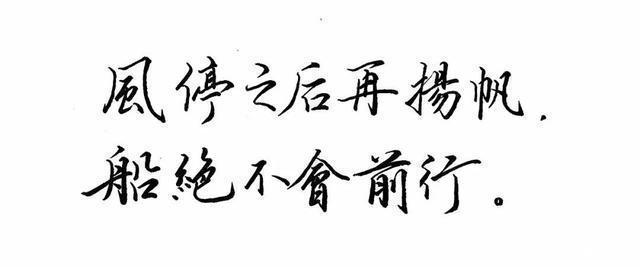 風停之后再揚帆,
船絕不會前行。